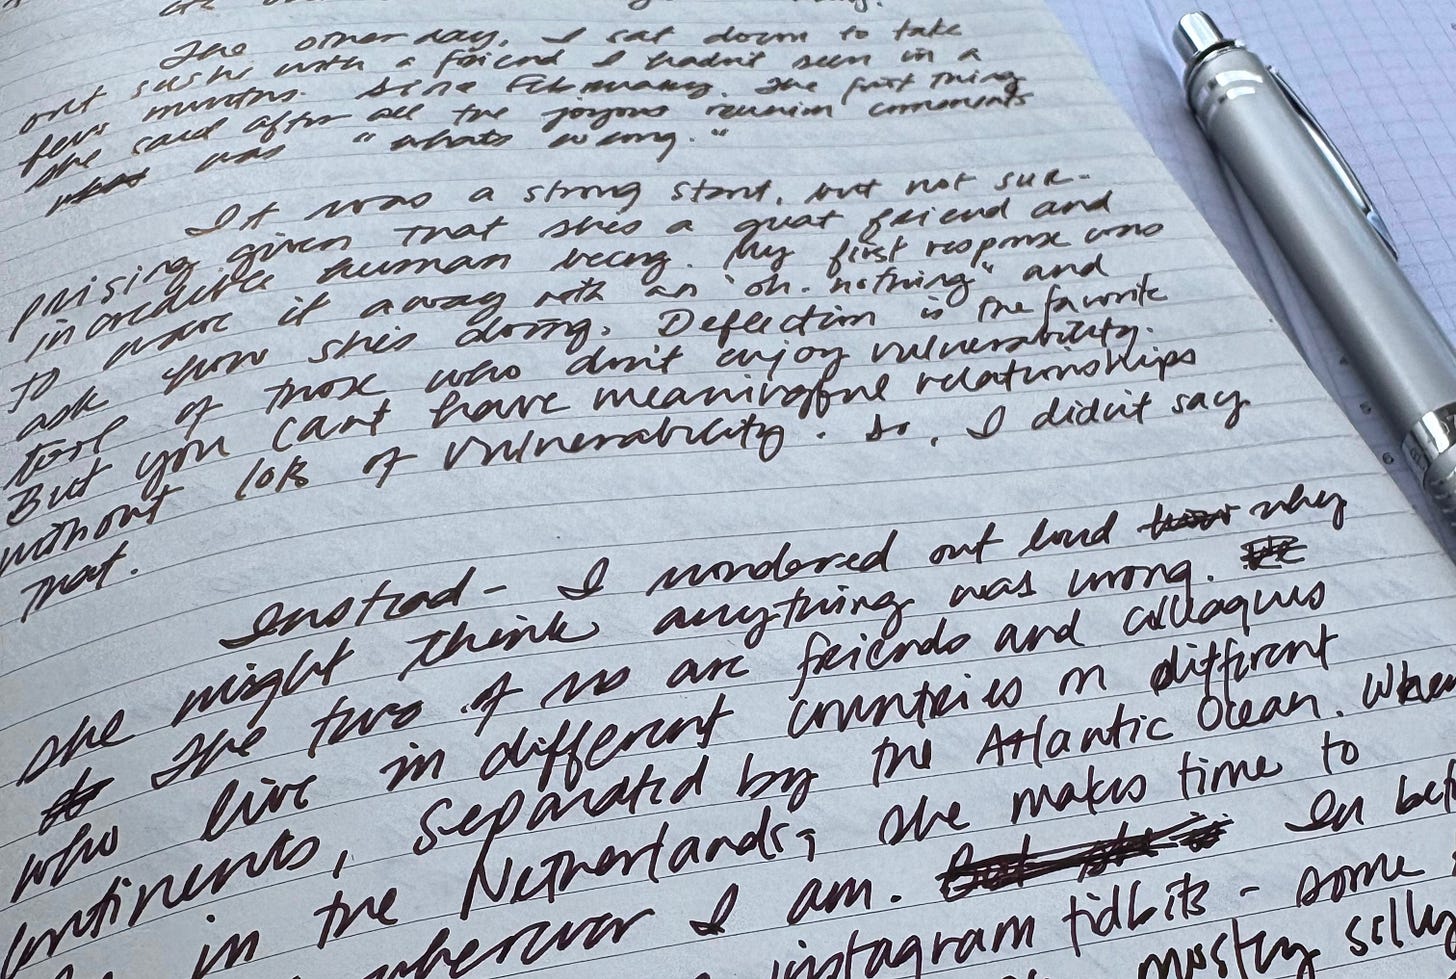 The other day, I sat down to take
out sushi with a friend I hadn't seen in a
few months. Since February. The first thing
she said after all the joyous reunion comments
was "whats wrong."
It was a strong start, but not sur-
prising given that she's a great friend and
incredible human being. My first response was
to wave it away with an "oh. nothing" and
ask how she's doing. Deflection is the favorite
tool of those who don't enjoy vulnerability.
But you can't have meaningful relationships
without lots of vulnerability. So, I didn't say
that.
Instead - I wondered out loud why
she might think anything was wrong.
The two of us are friends and colleagues
who live in different countries on different
continents, separated by the Atlantic Ocean. When
in the Netherlands, she makes time to
wherever I am. In
instagram tidbits - some
mostly silly